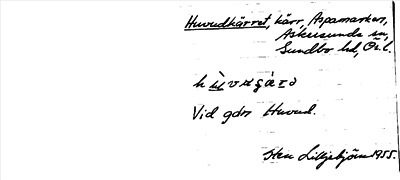 Huvudkärret, kärr, Aspamarken,
Askersunds sn,
Sundbo hd, Ör. l.
Vid gdn Huvud.
Sten Lilljebjörn 1955.